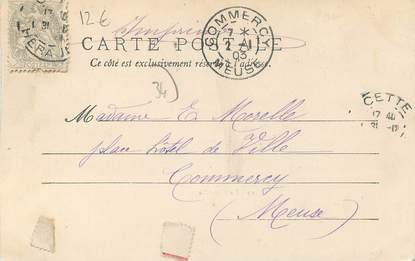 12 €
Imprimé
CARTE POSTALE
Ce côté est exclusivement réservé à l'adresse.
COMMERCY
MEUSE
03
34
CETTE
Madame E. Morelle
place hôtel de Ville
Commercy
(Meuse)